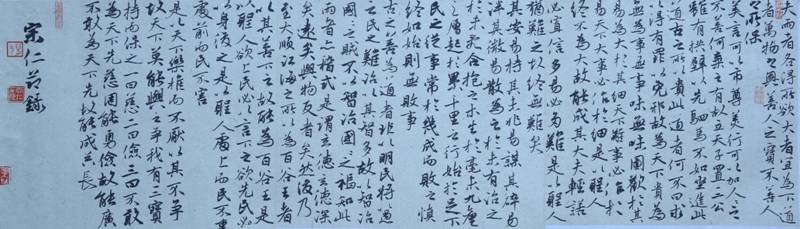 大而者各得所欲大者宜為下道
者萬物之奧善人之寶不善人
之所保
美言可以市尊美行可以加人之
不善何棄之有故立天子置三公
雖有拱璧以先駟馬不如坐進此
道古之所以貴此道者何不曰求
以得有罪以免邪故為天下貴為
無為事無事味無味圖難於其
易為大於其細天下難事必作於
易天下大事必作於細是以聖人
終不為大故能成其大夫輕諾
必寡信多易必多難是以聖人
猶難之故終無難矣
其安易持其未兆易謀其脆易
泮其微易散為之於未有治之
於未亂合抱之木生於毫末九層
之臺起於累土千里之行始於足下
民之從事常於幾成而敗之慎
終如始則無敗事
古之善為道者非以明民將以愚
之民之難治以其智多故以智治
國國之賊不以智治國國之福知此
兩者亦稽式是謂玄德玄德深
矣遠矣與物反矣然後乃
至大順江海之所以為百谷王者
以其善下之故能為百谷王是
以聖人欲上民必以言下之欲先民必
以身後之是以聖人處上而民不重
處前而民不害
是以天下樂推而不厭以其不爭
故天下莫能與之爭我有三寶
持而保之一曰慈二曰儉三曰不敢
為天下先慈故能勇儉故能廣
不敢為天下先故能成器長
宋仁節錄